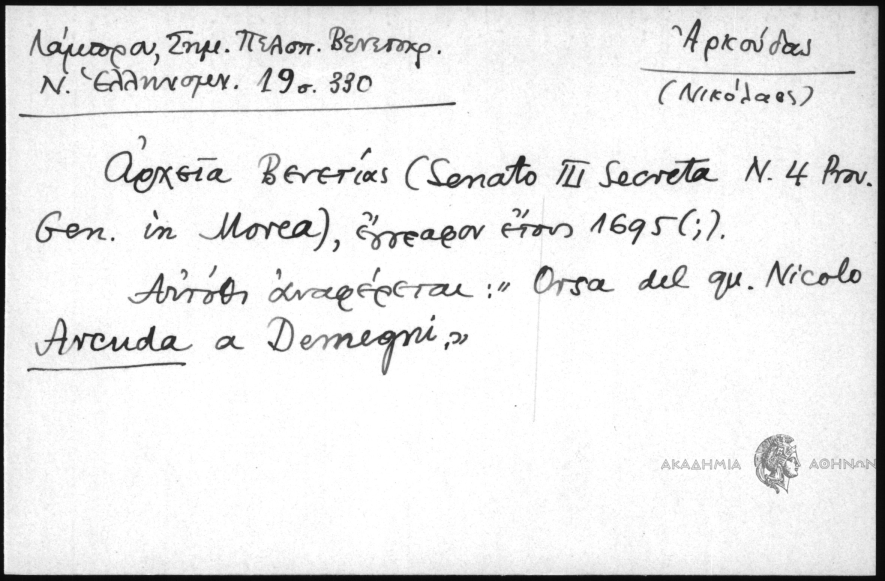 Λάμπρου, Σημ. Πελοπ. Βενετοκρ.
Ν. Ἑλληνομν. 19 σ. 330
Ἀρκούδας
(Νικόλαος)
Ἀρχεῖα Βενετίας (Senato III Secreta N. 4 Prov.
Gen. in Morea), ἔγγραφον ἔτους 1695(;).
Αὐτόθι ἀναφέρεται :" Orsa del qu. Nicolo
Arcuda a Demegni."
ΑΚΑΔΗΜΙΑ ΑΘΗΝΩΝ